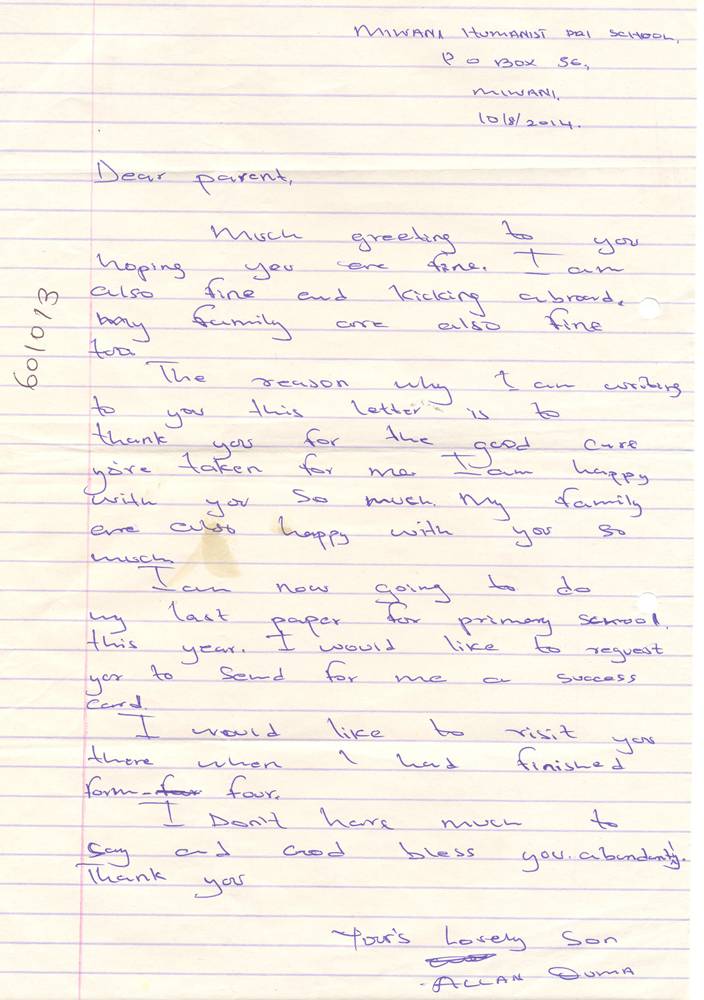 MIWANI HUMANIST PRI SCHOOL,
P O BOX 56,
MIWANI.
10/8/2014.
Dear parent,
Much greeting to you
hoping you are fine. I am
also fine and kicking abroad.
my family are also fine
too.
The reason why I am writing
to you this letter is to
thank you for the good care
you're taken for me. I am happy
with you so much. My family
are also happy with you so
much.
I am now going to do
my last paper for primary school.
this year. I would like to request
you to send for me a success
card.
I would like to visit you
there when I had finished
form four.
I Don't have much to
say and God bless you. abundantly.
Thank you
Your's Lovely Son
ALLAN OUMA
601013